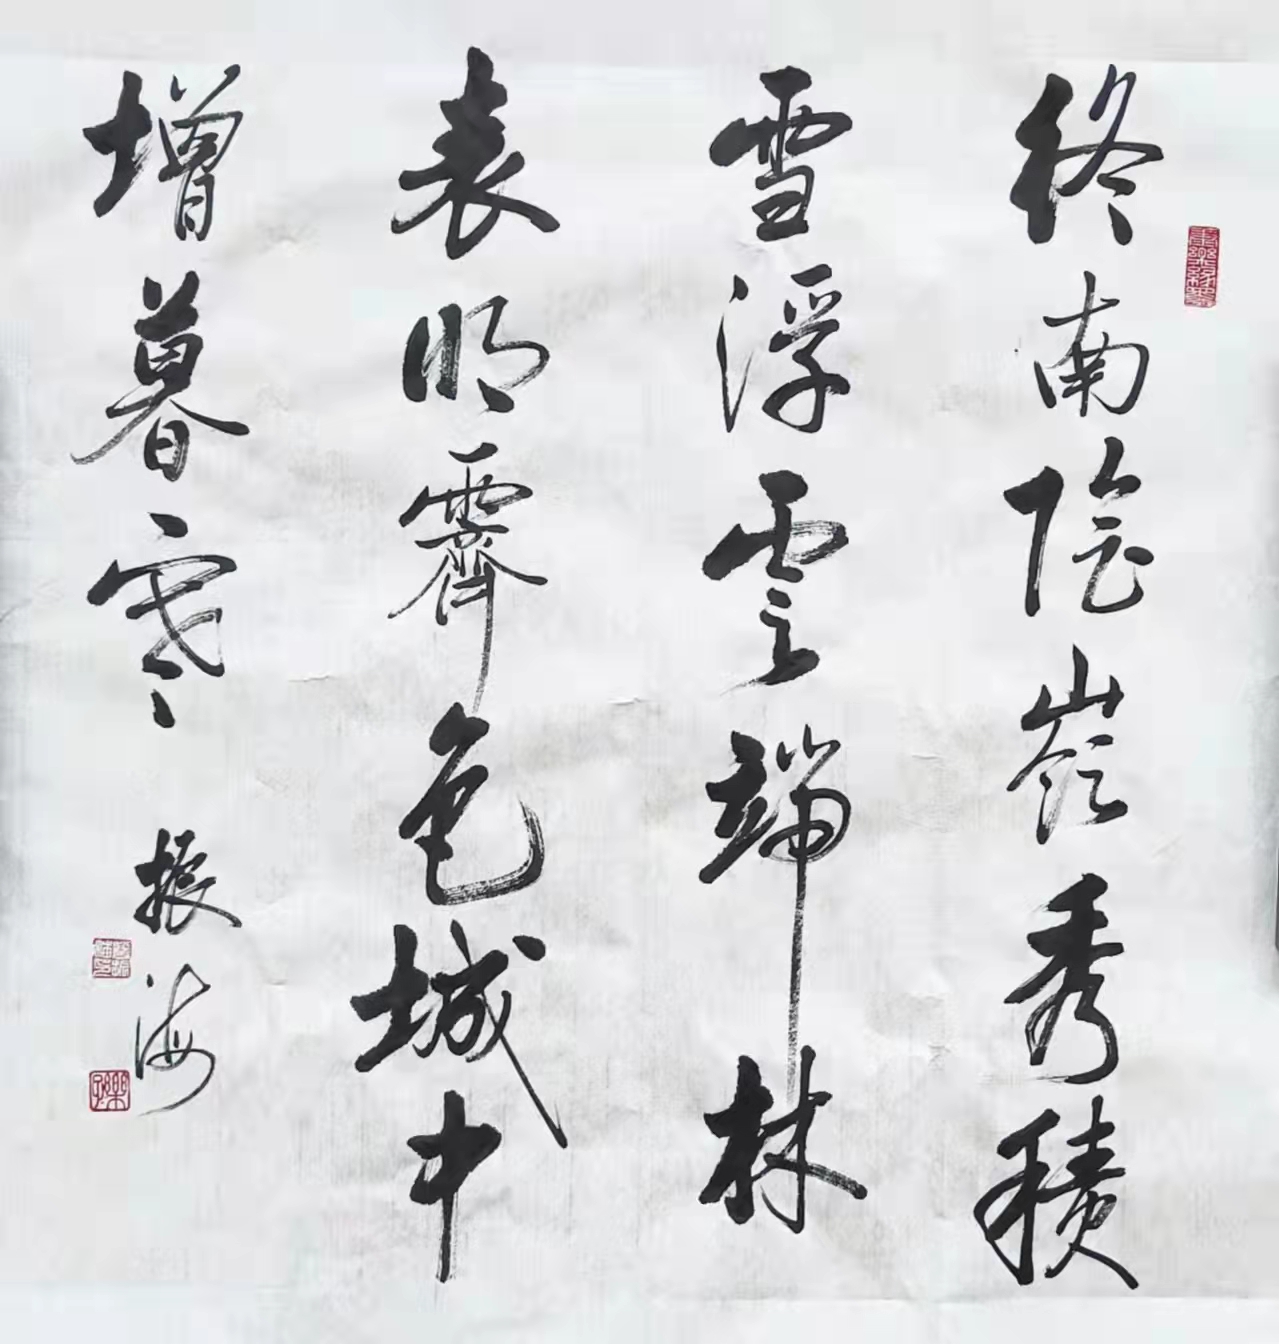 终南陰嶺秀積
雪浮雲端林
表明霽色城中
增暮寒
振海